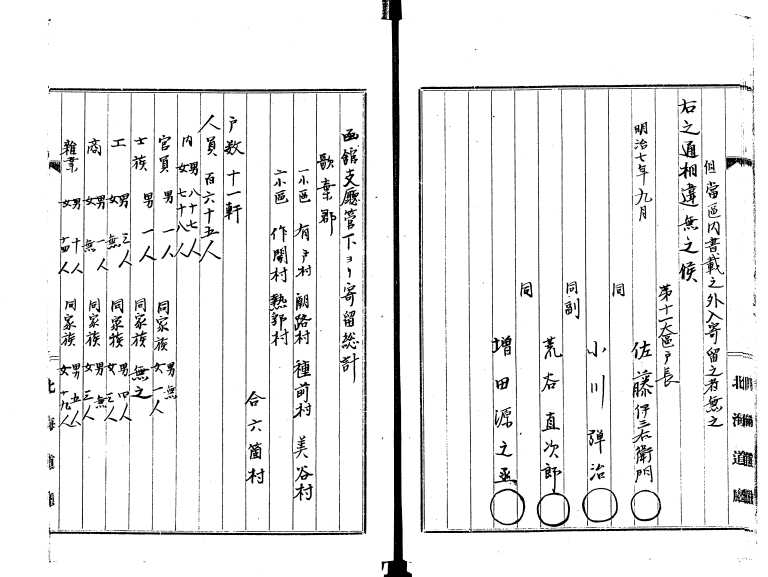 但當區内書載之外入寄留之者無之
右之通相違無之候
明治七年 九月
第十一大區戸長
佐藤伊三右衛門
同
小川弾治
同副
荒谷直次郎
同
増田源之丞
北海道廳
函館支廳管下ヨリ寄留総計
歌棄郡
一小區 有戸村 朗路村 種前村 美谷村
二小區 作開村 熱郛村
合六箇村
戸数 十一軒
人員 百六十五人
内 男 八十七人
女 七十八人
官員 男 一人 同家族 男 無
女 一人
士族 男 一人 同家族 無之
工 男 三人 同家族 男 四人
女 無 女 三人
商 男 一人 同家族 男 無
女 無 女 三人
雑業 男 十人 同家族 男 五人
女 十四人 女 十九人
北海道廳